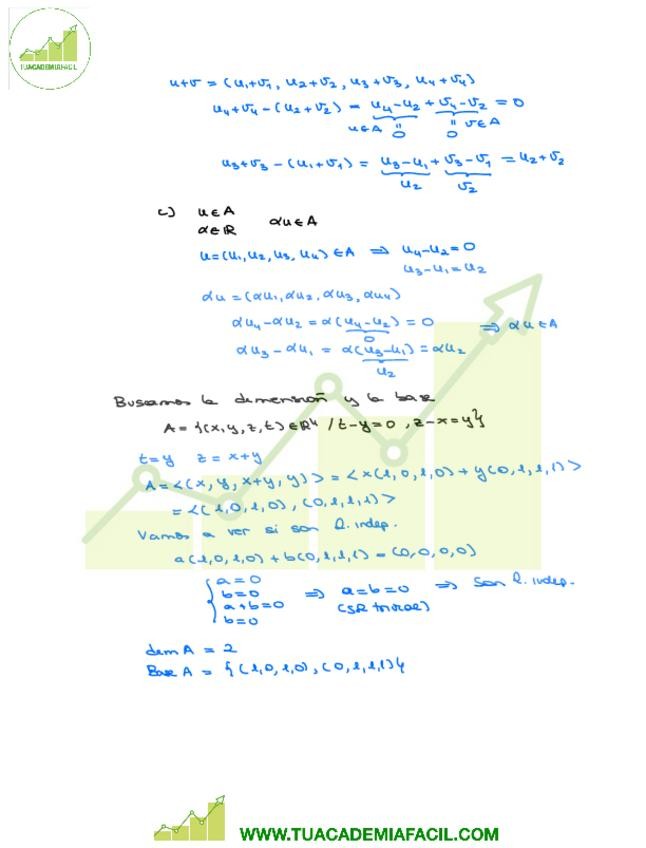 TUACADEMIAFACIL
u+v = (u₁+v₁, u₂+v₂, u₃+v₃, u₄+v₄)
u₄+v₄-(u₂+v₂) = u₄-u₂ + v₄-v₂ = 0
u∈A = 0 = 0 v∈A
u₃+v₃-(u₁+v₁) = u₃-u₁ + v₃-v₁ = u₂+v₂
u₂ v₂
c) u∈A
α∈ℝ αu∈A
u=(u₁,u₂,u₃,u₄)∈A ⇒ u₄-u₂=0
u₃-u₁=u₂
αu=(αu₁,αu₂,αu₃,αu₄)
αu₄-αu₂=α(u₄-u₂)=0 ⇒ αu∈A
0
αu₃-αu₁=α(u₃-u₁)=αu₂
u₂
Buscamos la dimensión y la base
A={(x,y,z,t)∈ℝ⁴ / t-y=0, z-x=y}
t=y z=x+y
A=<(x,y,x+y,y)>=<x(1,0,1,0)+y(0,1,1,1)>
=<(1,0,1,0),(0,1,1,1)>
Vamos a ver si son l. indep.
a(1,0,1,0)+b(0,1,1,1)=(0,0,0,0)
{ a=0
b=0 ⇒ a=b=0 ⇒ son l. indep.
a+b=0 (sol trivial)
b=0
dim A = 2
Base A = {(1,0,1,0),(0,1,1,1)}
WWW.TUACADEMIAFACIL.COM